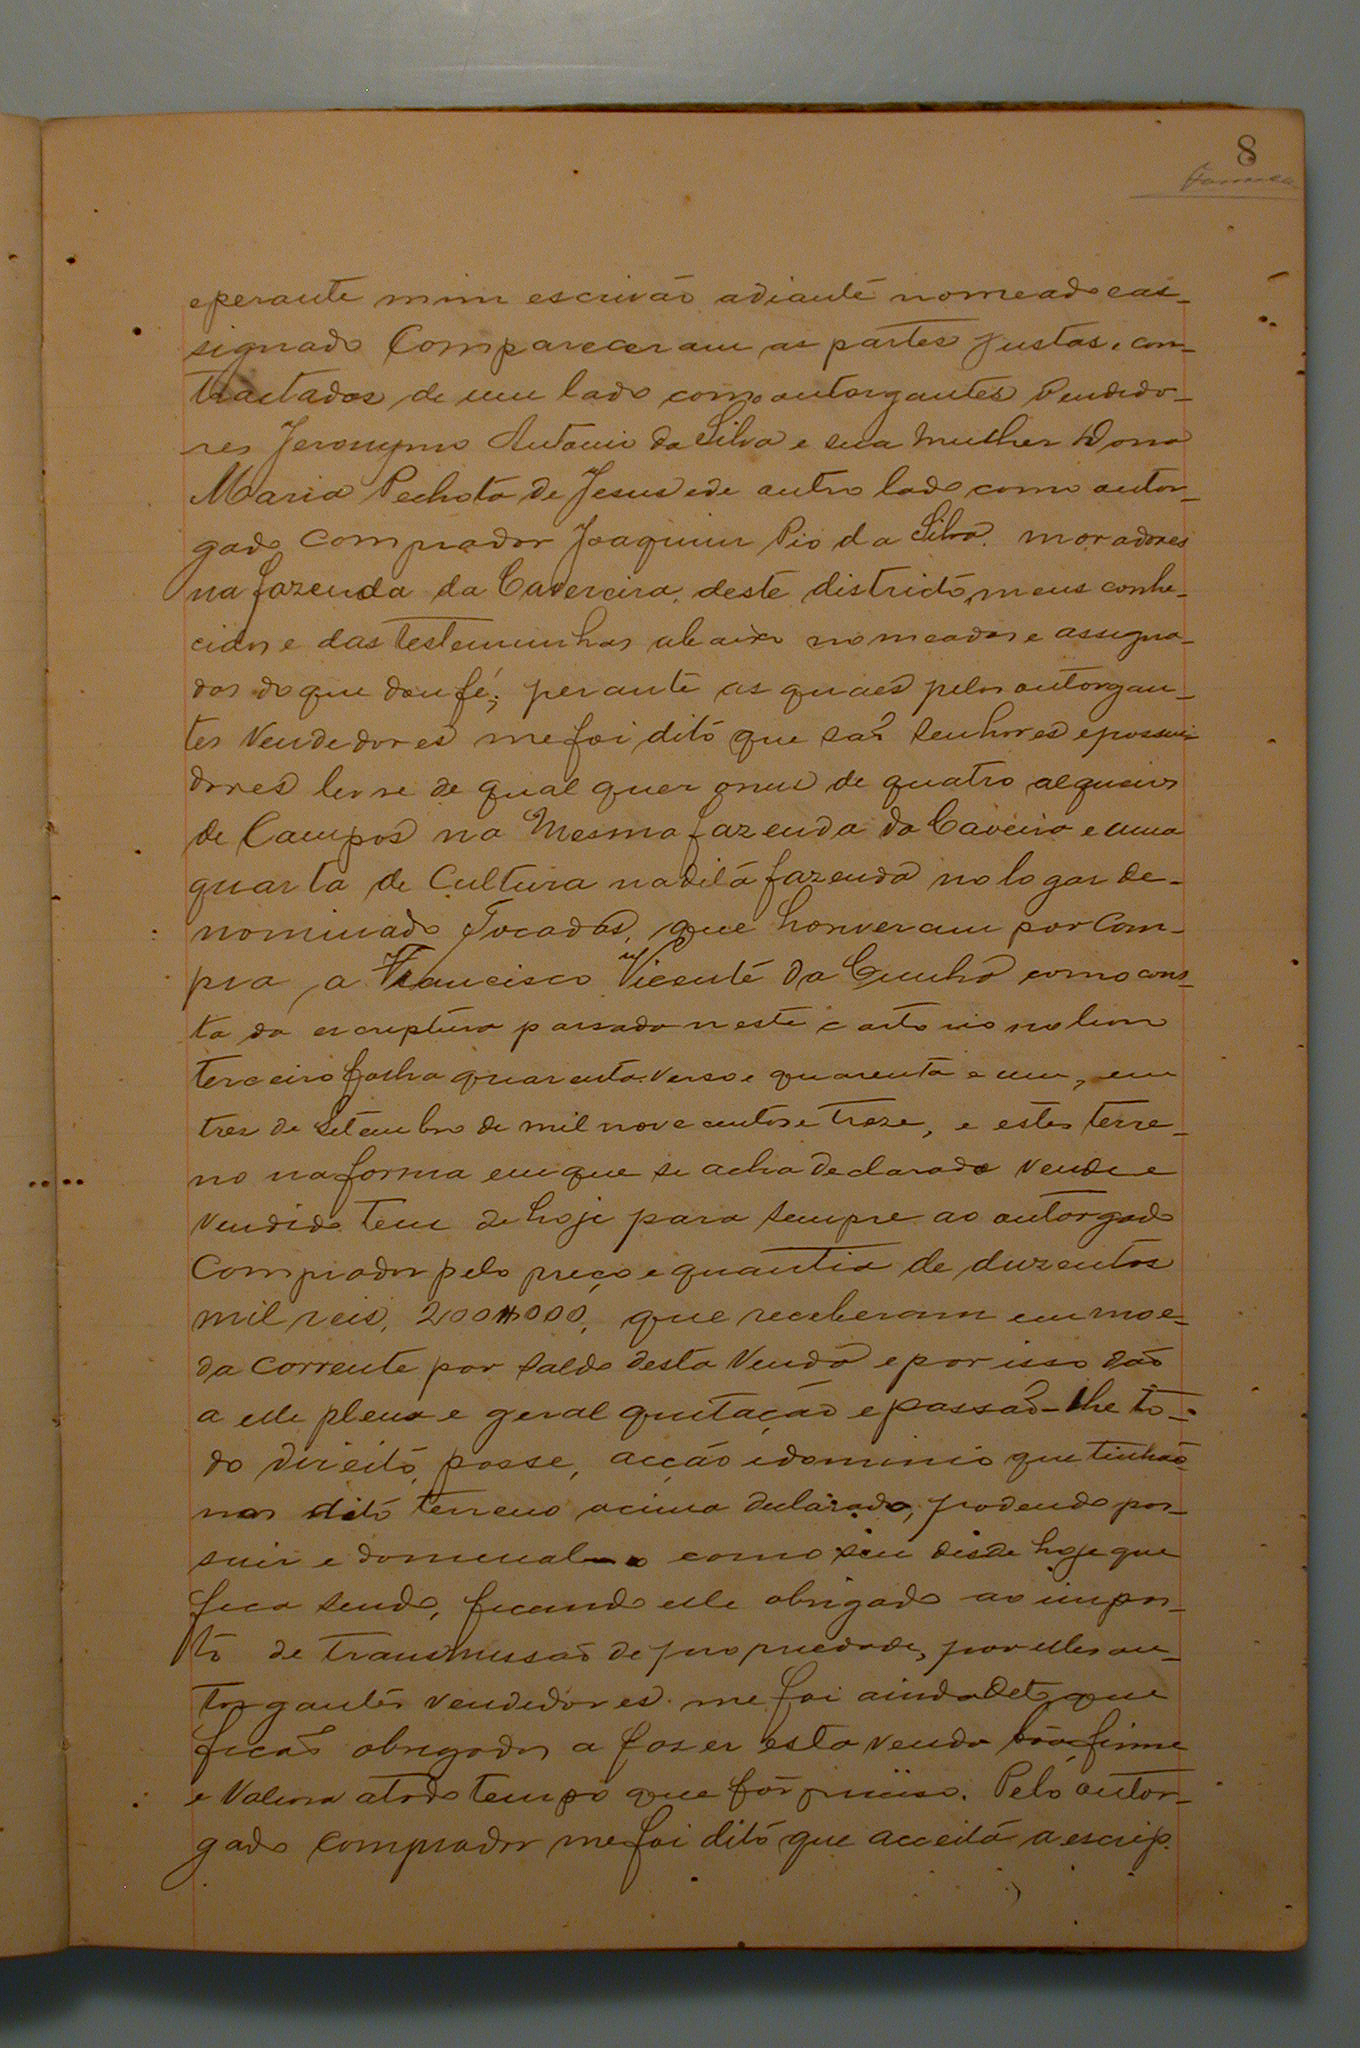 8
eperante mim escrivão adiante nomeado e as-
signado Compareceram as partes justas, con-
tractadas de um lado como outorgantes Vendedo-
res Jeronymo Antonio da Silva e sua mulher Dona
Maria Pechota de Jesus e de outro lado como outor-
gado Comprador Joaquim Pio da Silva, moradores
na fazenda da Cavereira, deste districto, meus conhe-
cidos e das testemunhas abaixo nomeadas e assigna-
das do que dou fé; perante as quaes pelos outorgan-
tes Vendedores me foi dito que saõ senhores e possui-
dores levre de qual quer onus de quatro alqueires
de Campos na Mesma fazenda da Caveira e uma
quarta de Cultura na dita fazenda no logar de-
nominado Tocadas, que houveram por Com-
pra a Francisco Vicente da Cunha como cons-
ta da escriptura passada neste cartorio no livro
terceiro folha quarenta verso e quarenta e um, em
tres de Setembro de mil nove centos e treze, e estes terre-
no na forma em que se acha declarado Vende e
Vendido tem de hoje para sempre ao outorgado
Comprador pelo preço e quantia de duzentos
mil reis, 200$000, que receberam em moe-
da corrente por saldo desta Venda e por isso dão
a elle plena e geral quitação e passaõ-lhe to-
do direito, posse, acção e dominio que tinhão
nos dito terreno acima declarado, podendo pos-
suir e domenal-o como seu desde hoje que
fica sendo, ficando elle obrigado ao impos-
to de transmissaõ de propriedade, por elles ou-
torgantes vendedores me foi ainda Deto que
ficaõ obrigados a fazer esta venda bôa, firme
e Valiosa atodo tempo que fôr preciso. Pelo outor-
gado comprador me foi dito que acceita a escrip.